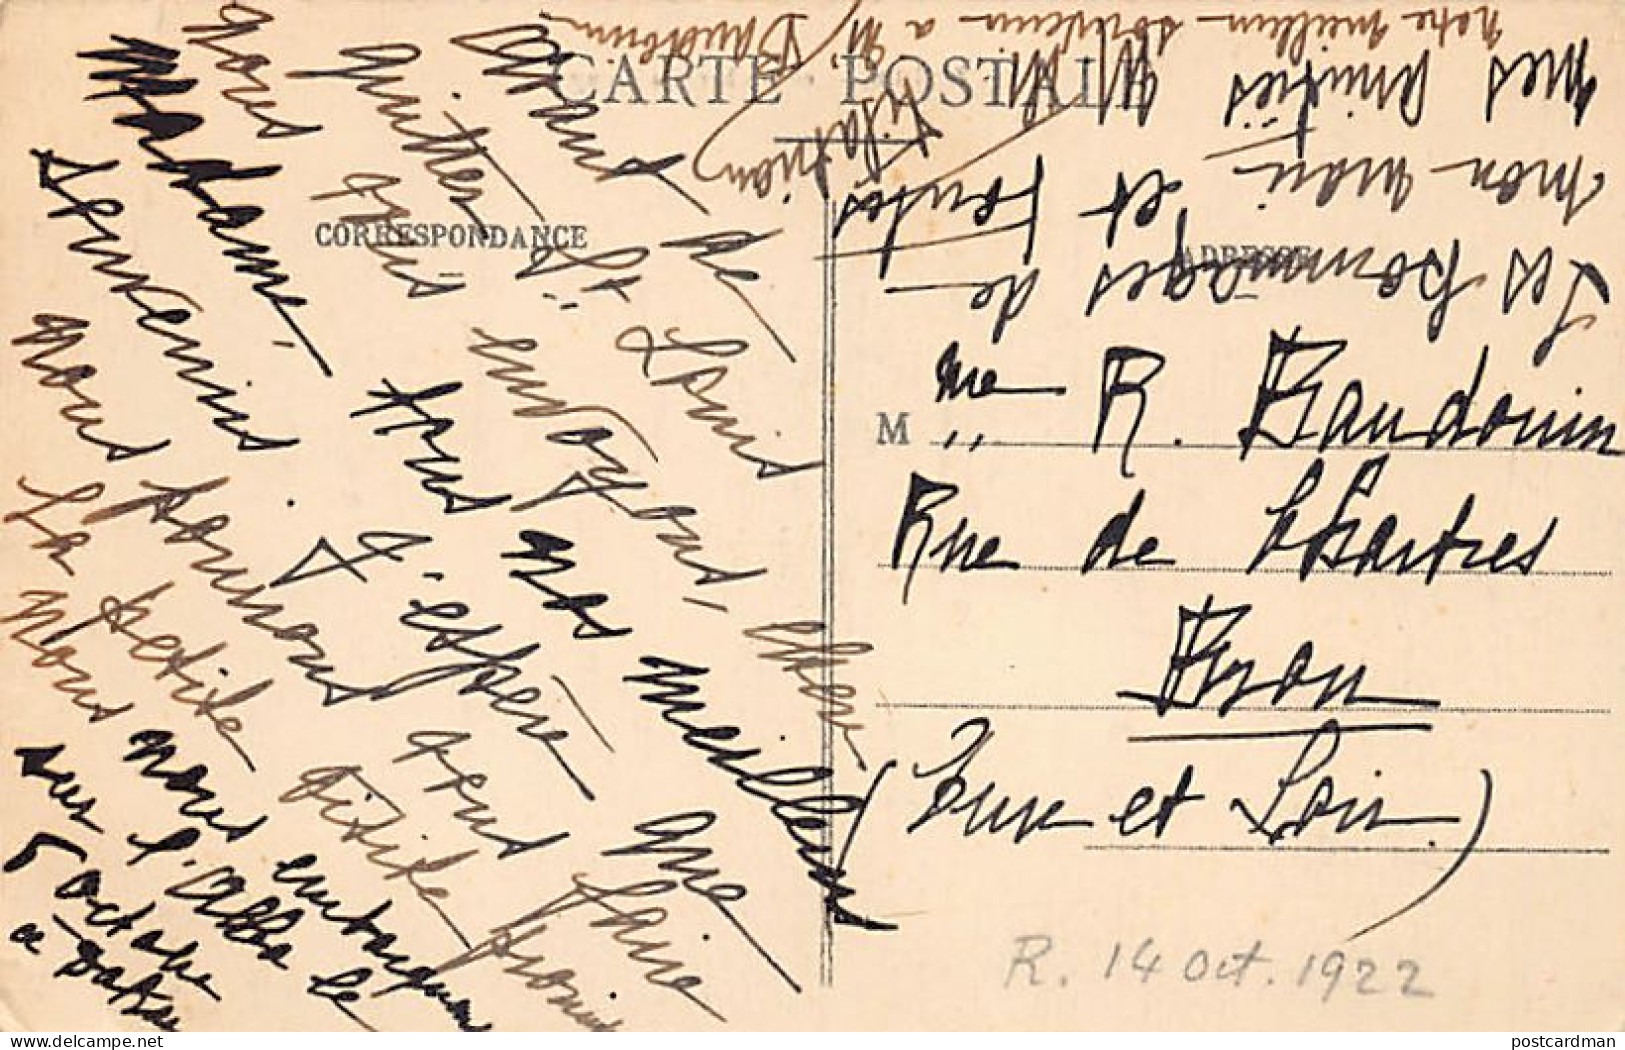 CARTE POSTALE
CORRESPONDANCE
ADRESSE
Avant de
quitter St Louis
nous vous envoyons, chère
Madame, tous nos meilleurs
souvenirs. J'espère que
nous pourrons vous faire
La petite visite
Nous nous embarquons
sur l'Abba le
5 octobre
a Dakar
Les hommages de
mon mari et toutes
mes amitiés
notre meilleur souvenir a M. Baudouin
M me R. Baudouin
Rue de Chartres
Brou
(Eure et Loir)
R. 14 Oct. 1922
postcardman